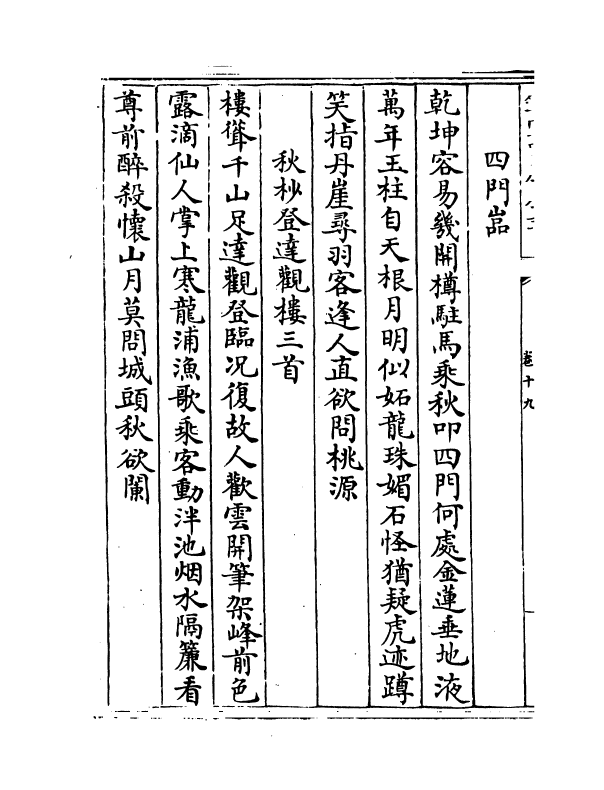 卷十九
四門嵓
乾坤容易幾開樽駐馬乘秋叩四門何處金蓮垂地液
萬年玉柱自天根月明似妬龍珠媚石怪猶疑虎迹蹲
笑指丹崖尋羽客逢人直欲問桃源
秋杪登達觀樓三首
樓聳千山足達觀登臨况復故人歡雲開筆架峰前色
露滴仙人掌上寒龍浦漁歌乘客動泮池烟水隔簾看
尊前醉殺懷山月莫問城頭秋欲闌